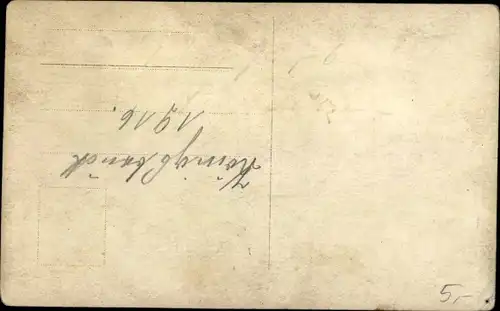 Königsbrück
1916.
5,-